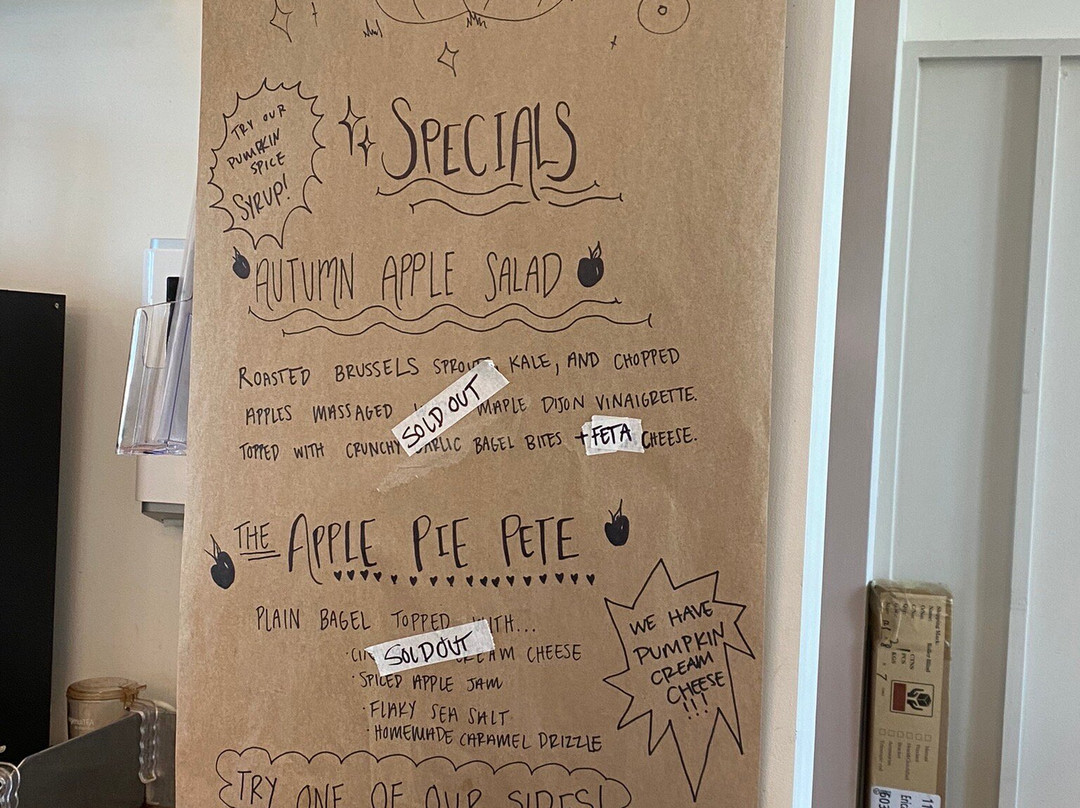 TRY OUR
PUMPKIN
SPICE
SYRUP!
SPECIALS
AUTUMN APPLE SALAD
ROASTED BRUSSELS KALE, AND CHOPPED
APPLES MASSAGED MAPLE DIJON VINAIGRETTE.
SOLD OUT
TOPPED WITH CRUNCHY GARLIC BAGEL BITES + FETA CHEESE.
THE APPLE PIE PETE
PLAIN BAGEL TOPPED WITH...
· CREAM CHEESE
SOLD OUT
· SPICED APPLE JAM
· FLAKY SEA SALT
· HOMEMADE CARAMEL DRIZZLE
WE HAVE
PUMPKIN
CREAM
CHEESE
!!!
TRY ONE OF OUR SIDES!